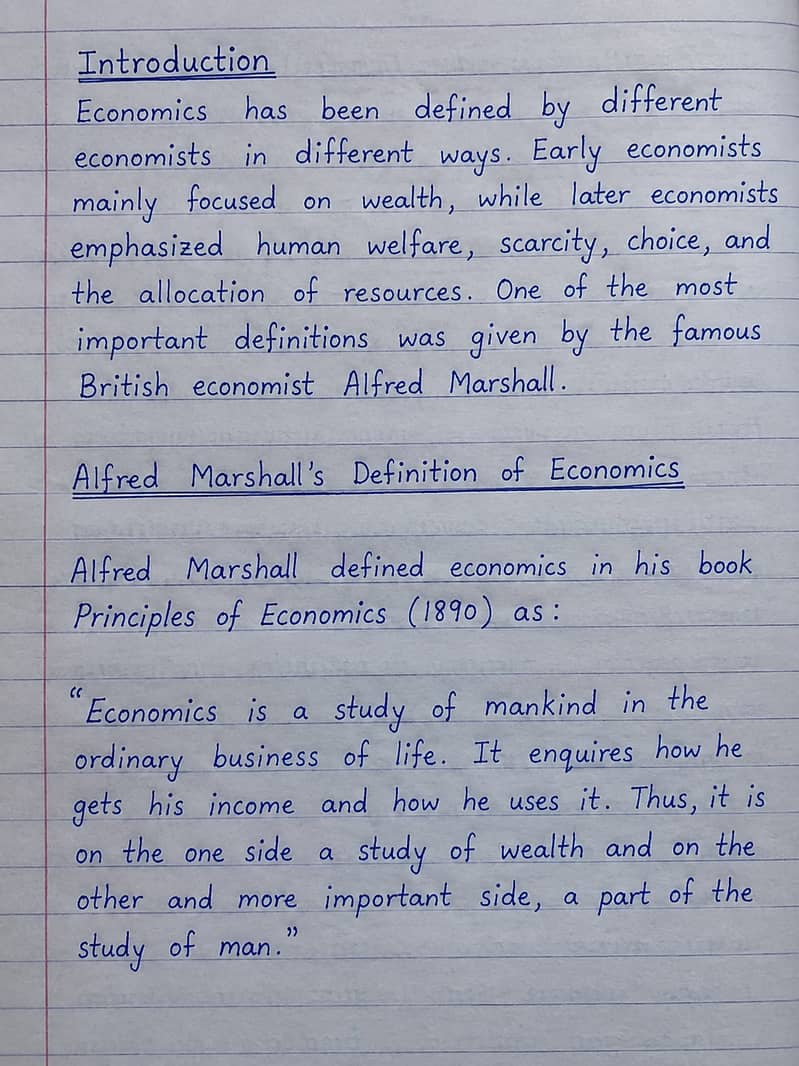 Introduction
Economics has been defined by different
economists in different ways. Early economists
mainly focused on wealth, while later economists
emphasized human welfare, scarcity, choice, and
the allocation of resources. One of the most
important definitions was given by the famous
British economist Alfred Marshall.
Alfred Marshall's Definition of Economics
Alfred Marshall defined economics in his book
Principles of Economics (1890) as:
“Economics is a study of mankind in the
ordinary business of life. It enquires how he
gets his income and how he uses it. Thus, it is
on the one side a study of wealth and on the
other and more important side, a part of the
study of man.”